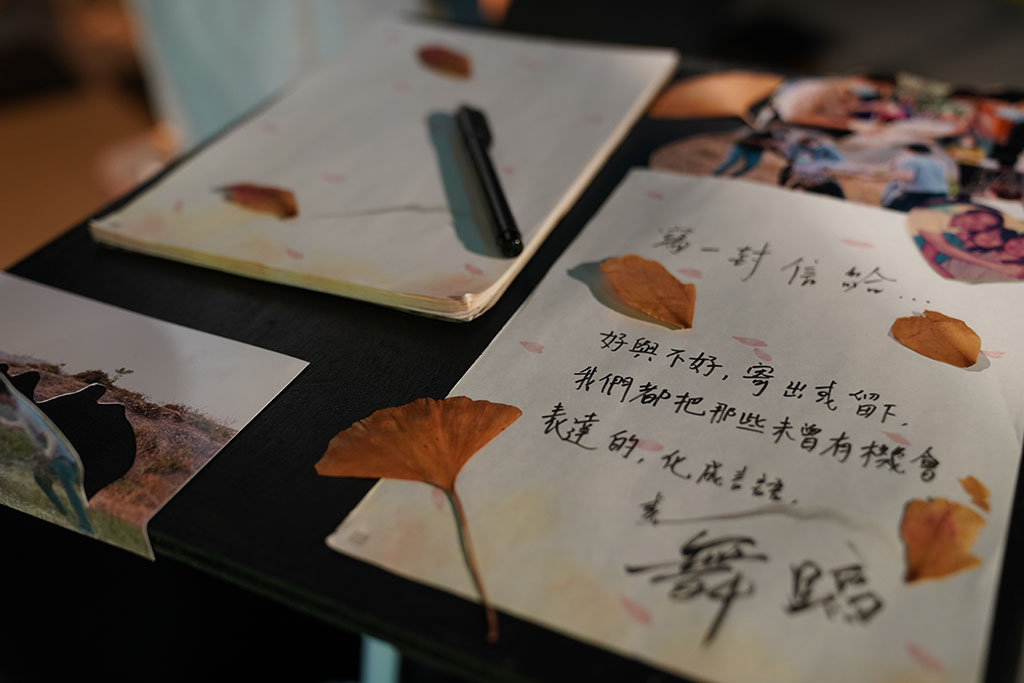 寫一封信給...
好與不好，寄出或留下，
我們都把那些未曾有機會
表達的，化成言語，
來
舞蹈